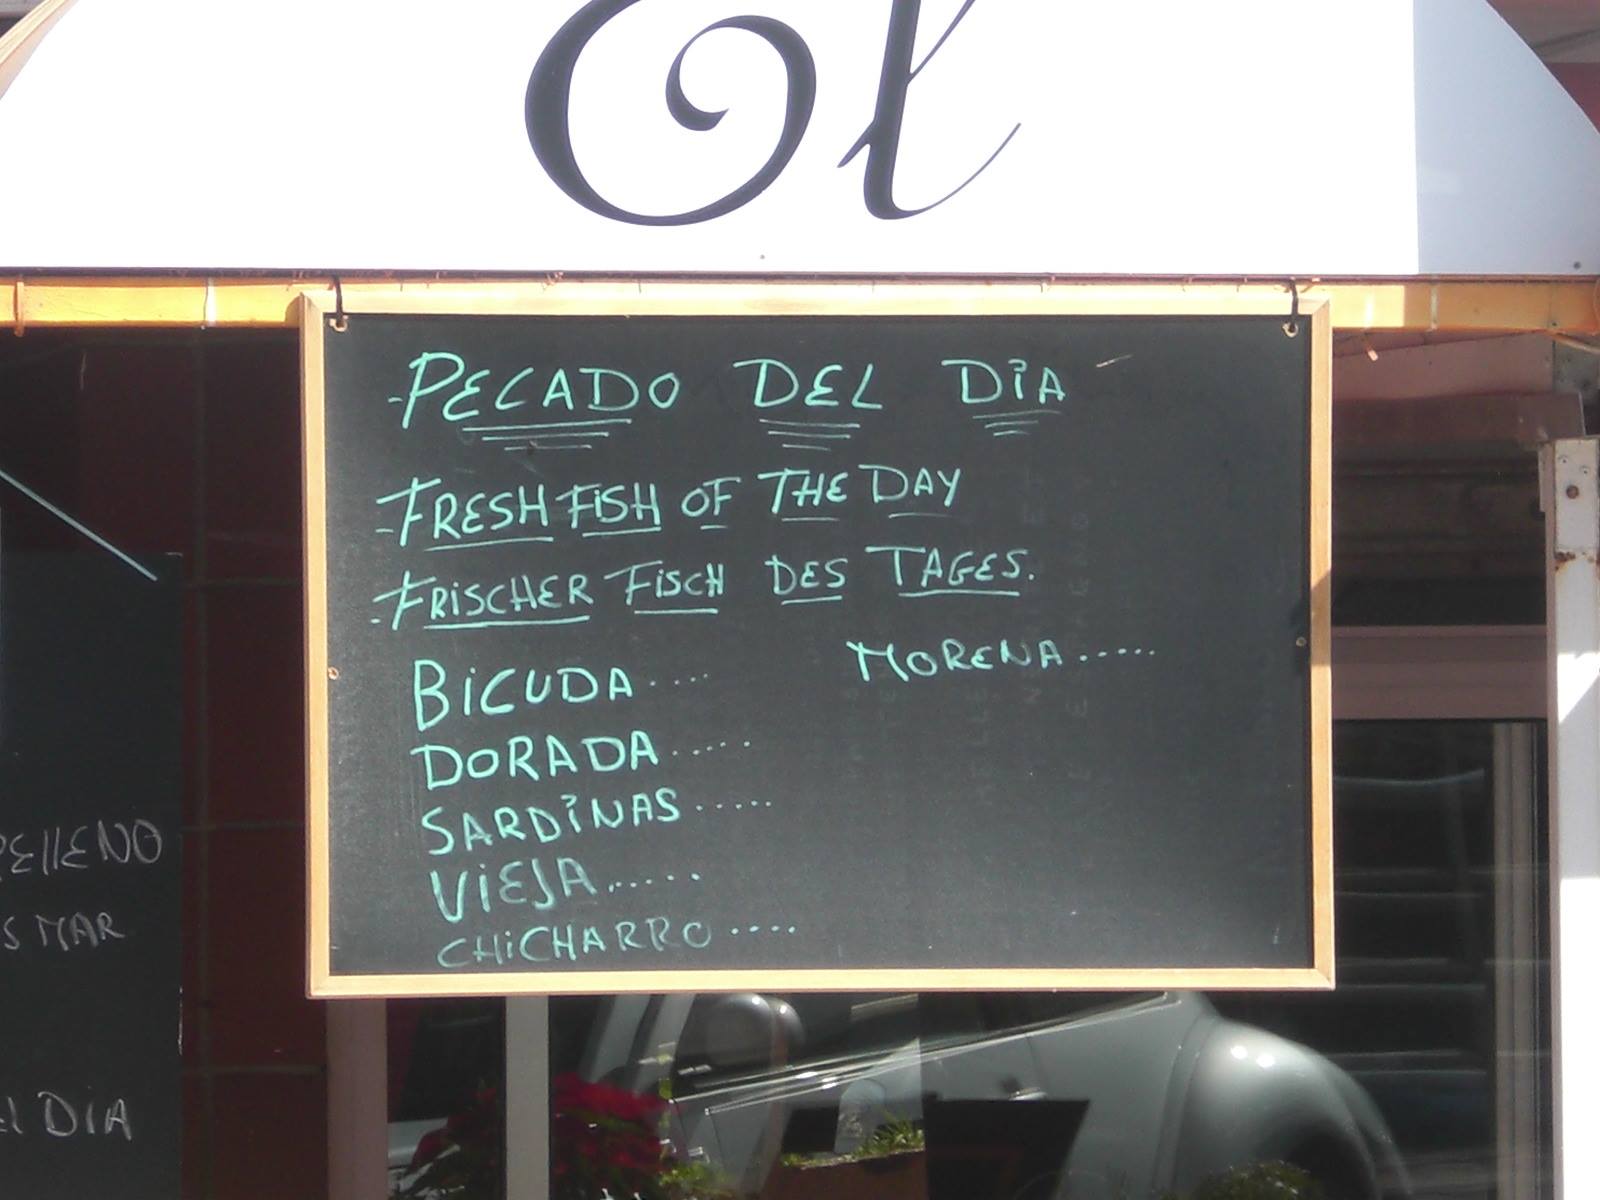 El
PECADO DEL DIA
FRESH FISH OF THE DAY
FRISCHER FISCH DES TAGES.
BICUDA.... MORENA.....
DORADA.....
SARDINAS.....
VIEJA.....
CHICHARRO....
RELLENO
S MAR
El DIA